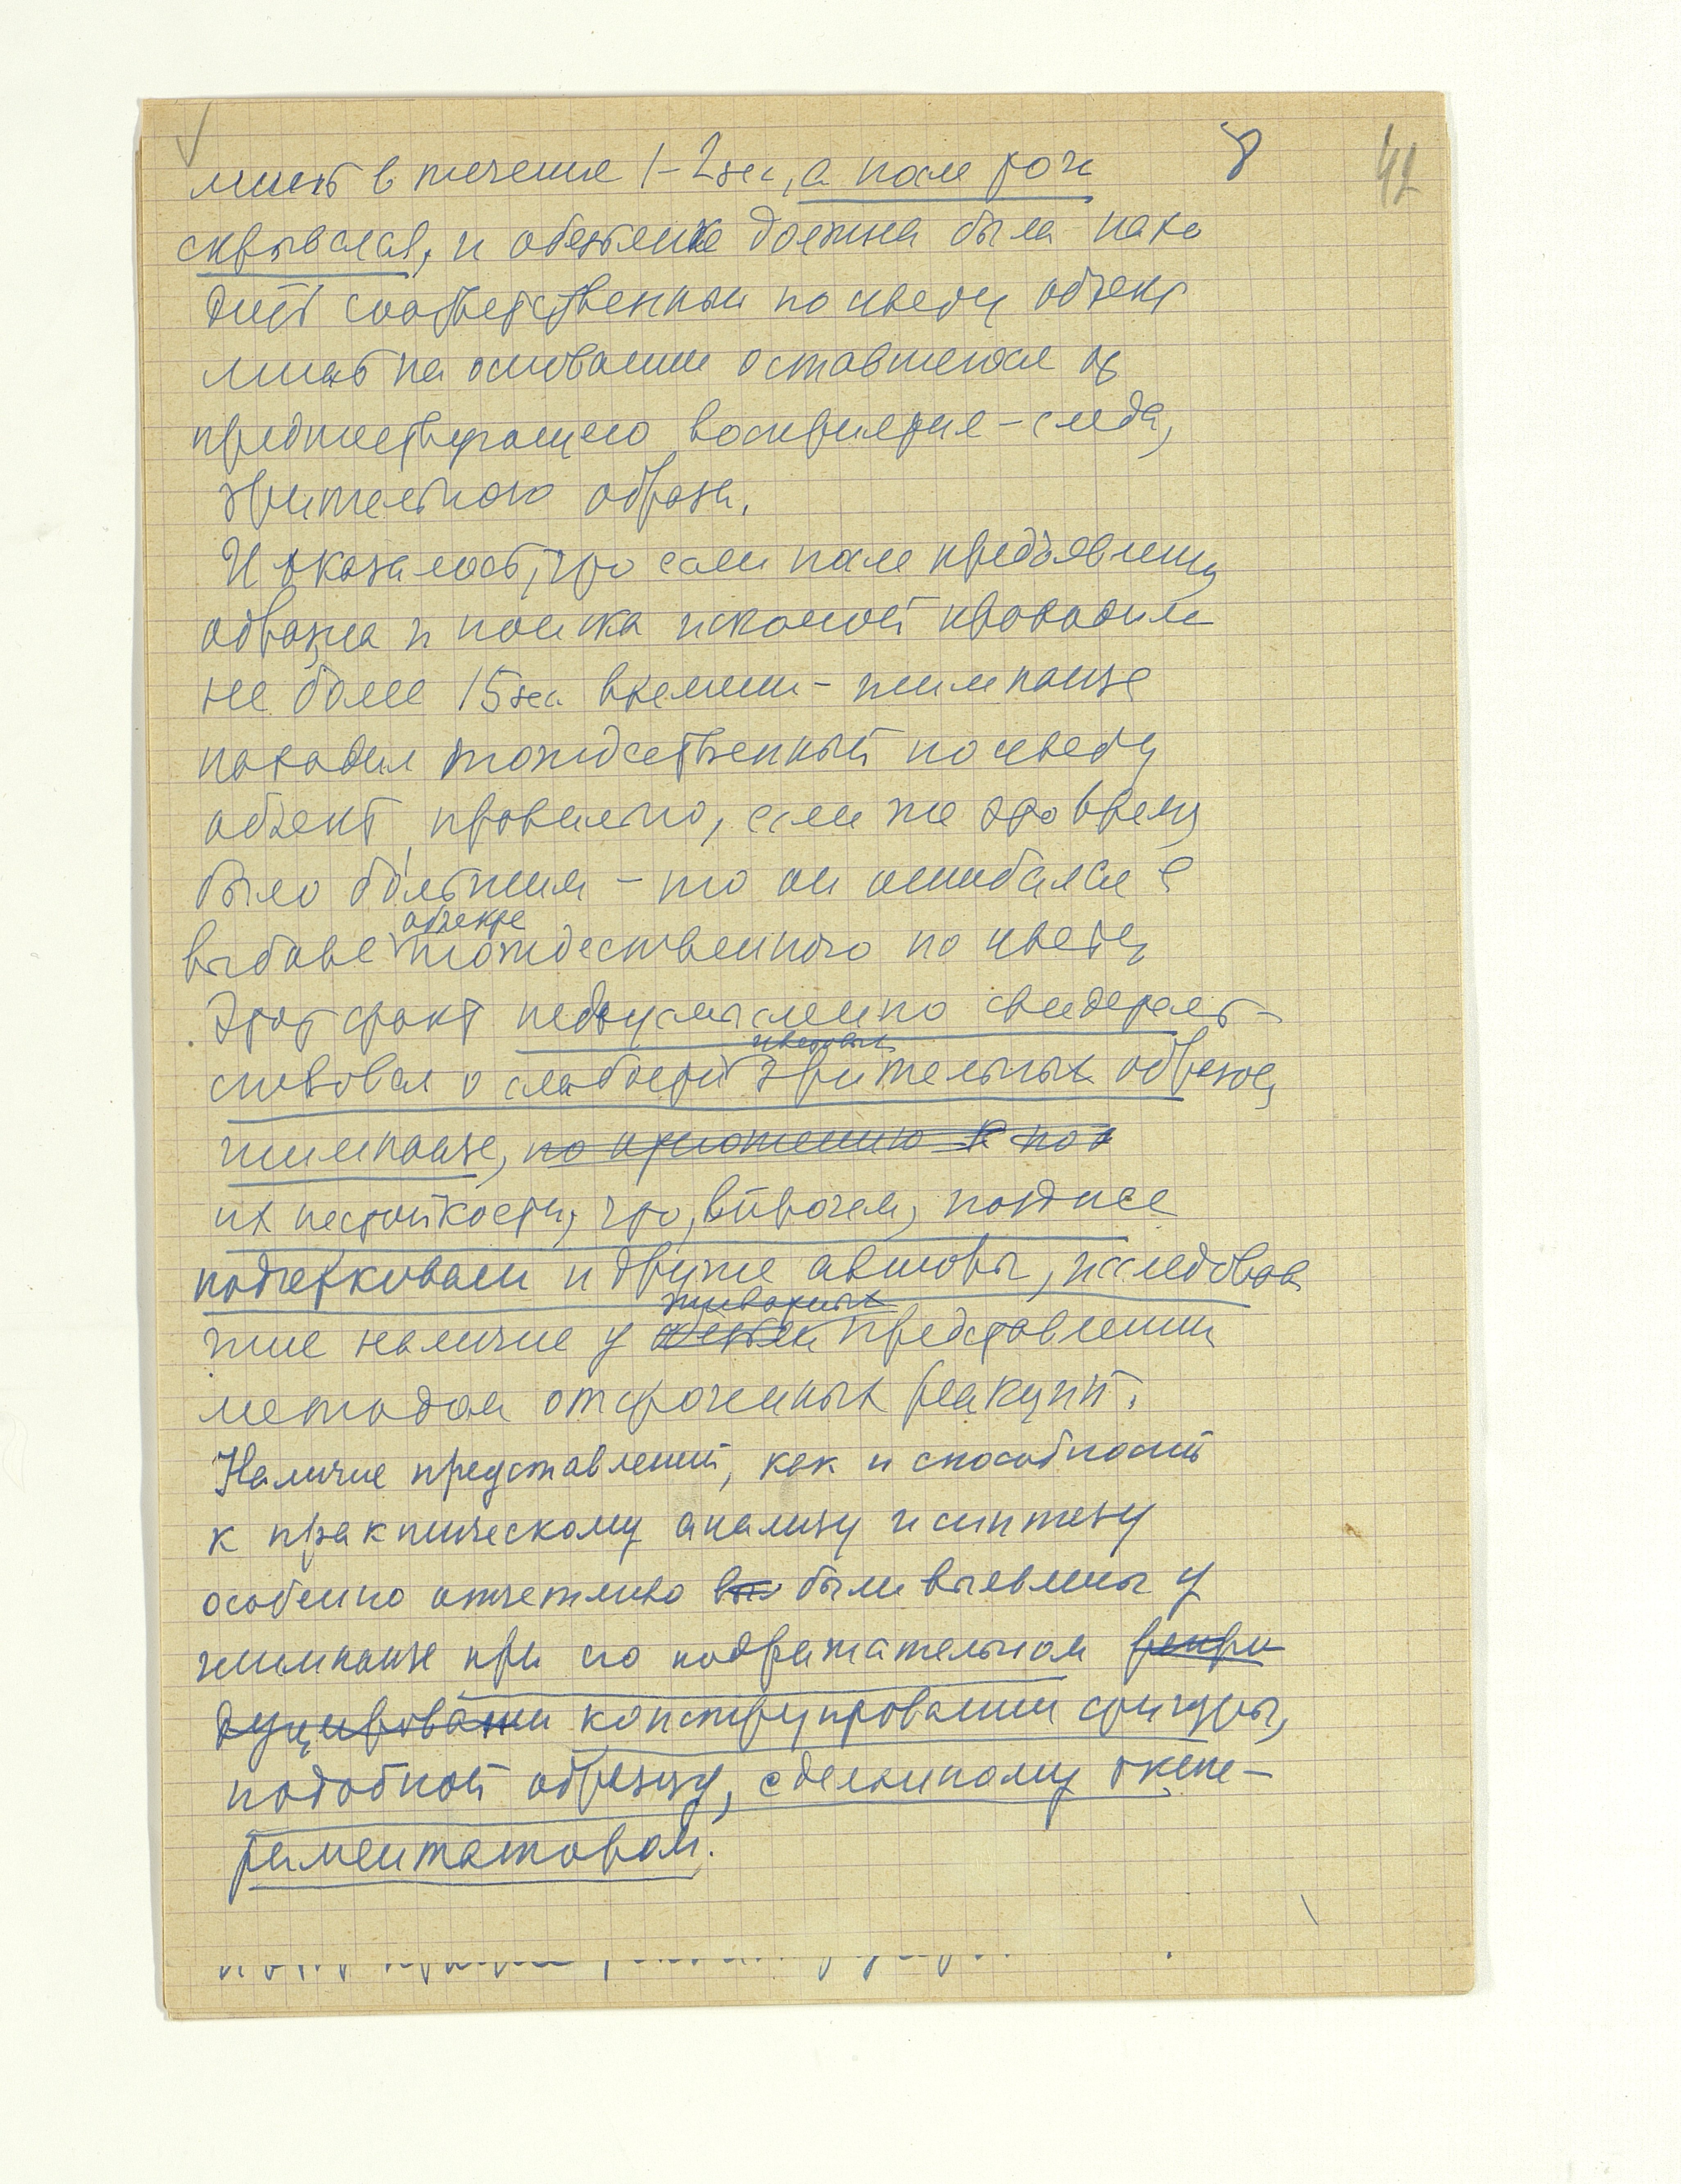 8 42
лишь в течение 1-2 sec, а после того
скрывался, и обезьяна должна была нахо
дить соответственный по цвету объект
лишь на основании оставшегося от
предшествующего восприятия - следа,
зрительного образа.
И оказалось, что если после предъявления
образца и поиска искомой проходило
не более 15 sec времени - шимпанзе
находил тождественный по цвету
объект правильно, если же это время
было бо́льшим - то он ошибался в
выборе объекта тождественного по цвету
Этот факт недвусмысленно свидетель-
ствовал о слабости цветовых зрительных образов
шимпанзе, по их
нестойкости, что, впрочем, позднее
подчеркивали и другие авторы, исследовав
шие наличие у животных обезьян представлений
методом отсроченных реакций.
Наличие представлений, как и способность
к практическому анализу и синтезу
особенно отчетливо были выявлены у
шимпанзе при его подражательном репро
дуцировании конструировании фигуры,
подобной образцу, сделанному экспе-
риментатором.